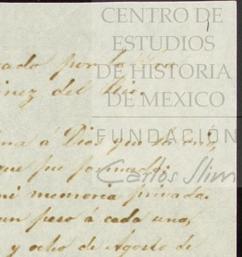 CENTRO DE
ESTUDIOS
DE HISTORIA
DE MEXICO
FUNDACIÓN
Carlos Slim
por la
del
á Dios que
que fue formada
mi memoria privada.
un peso á cada uno,
y ocho de Agosto de